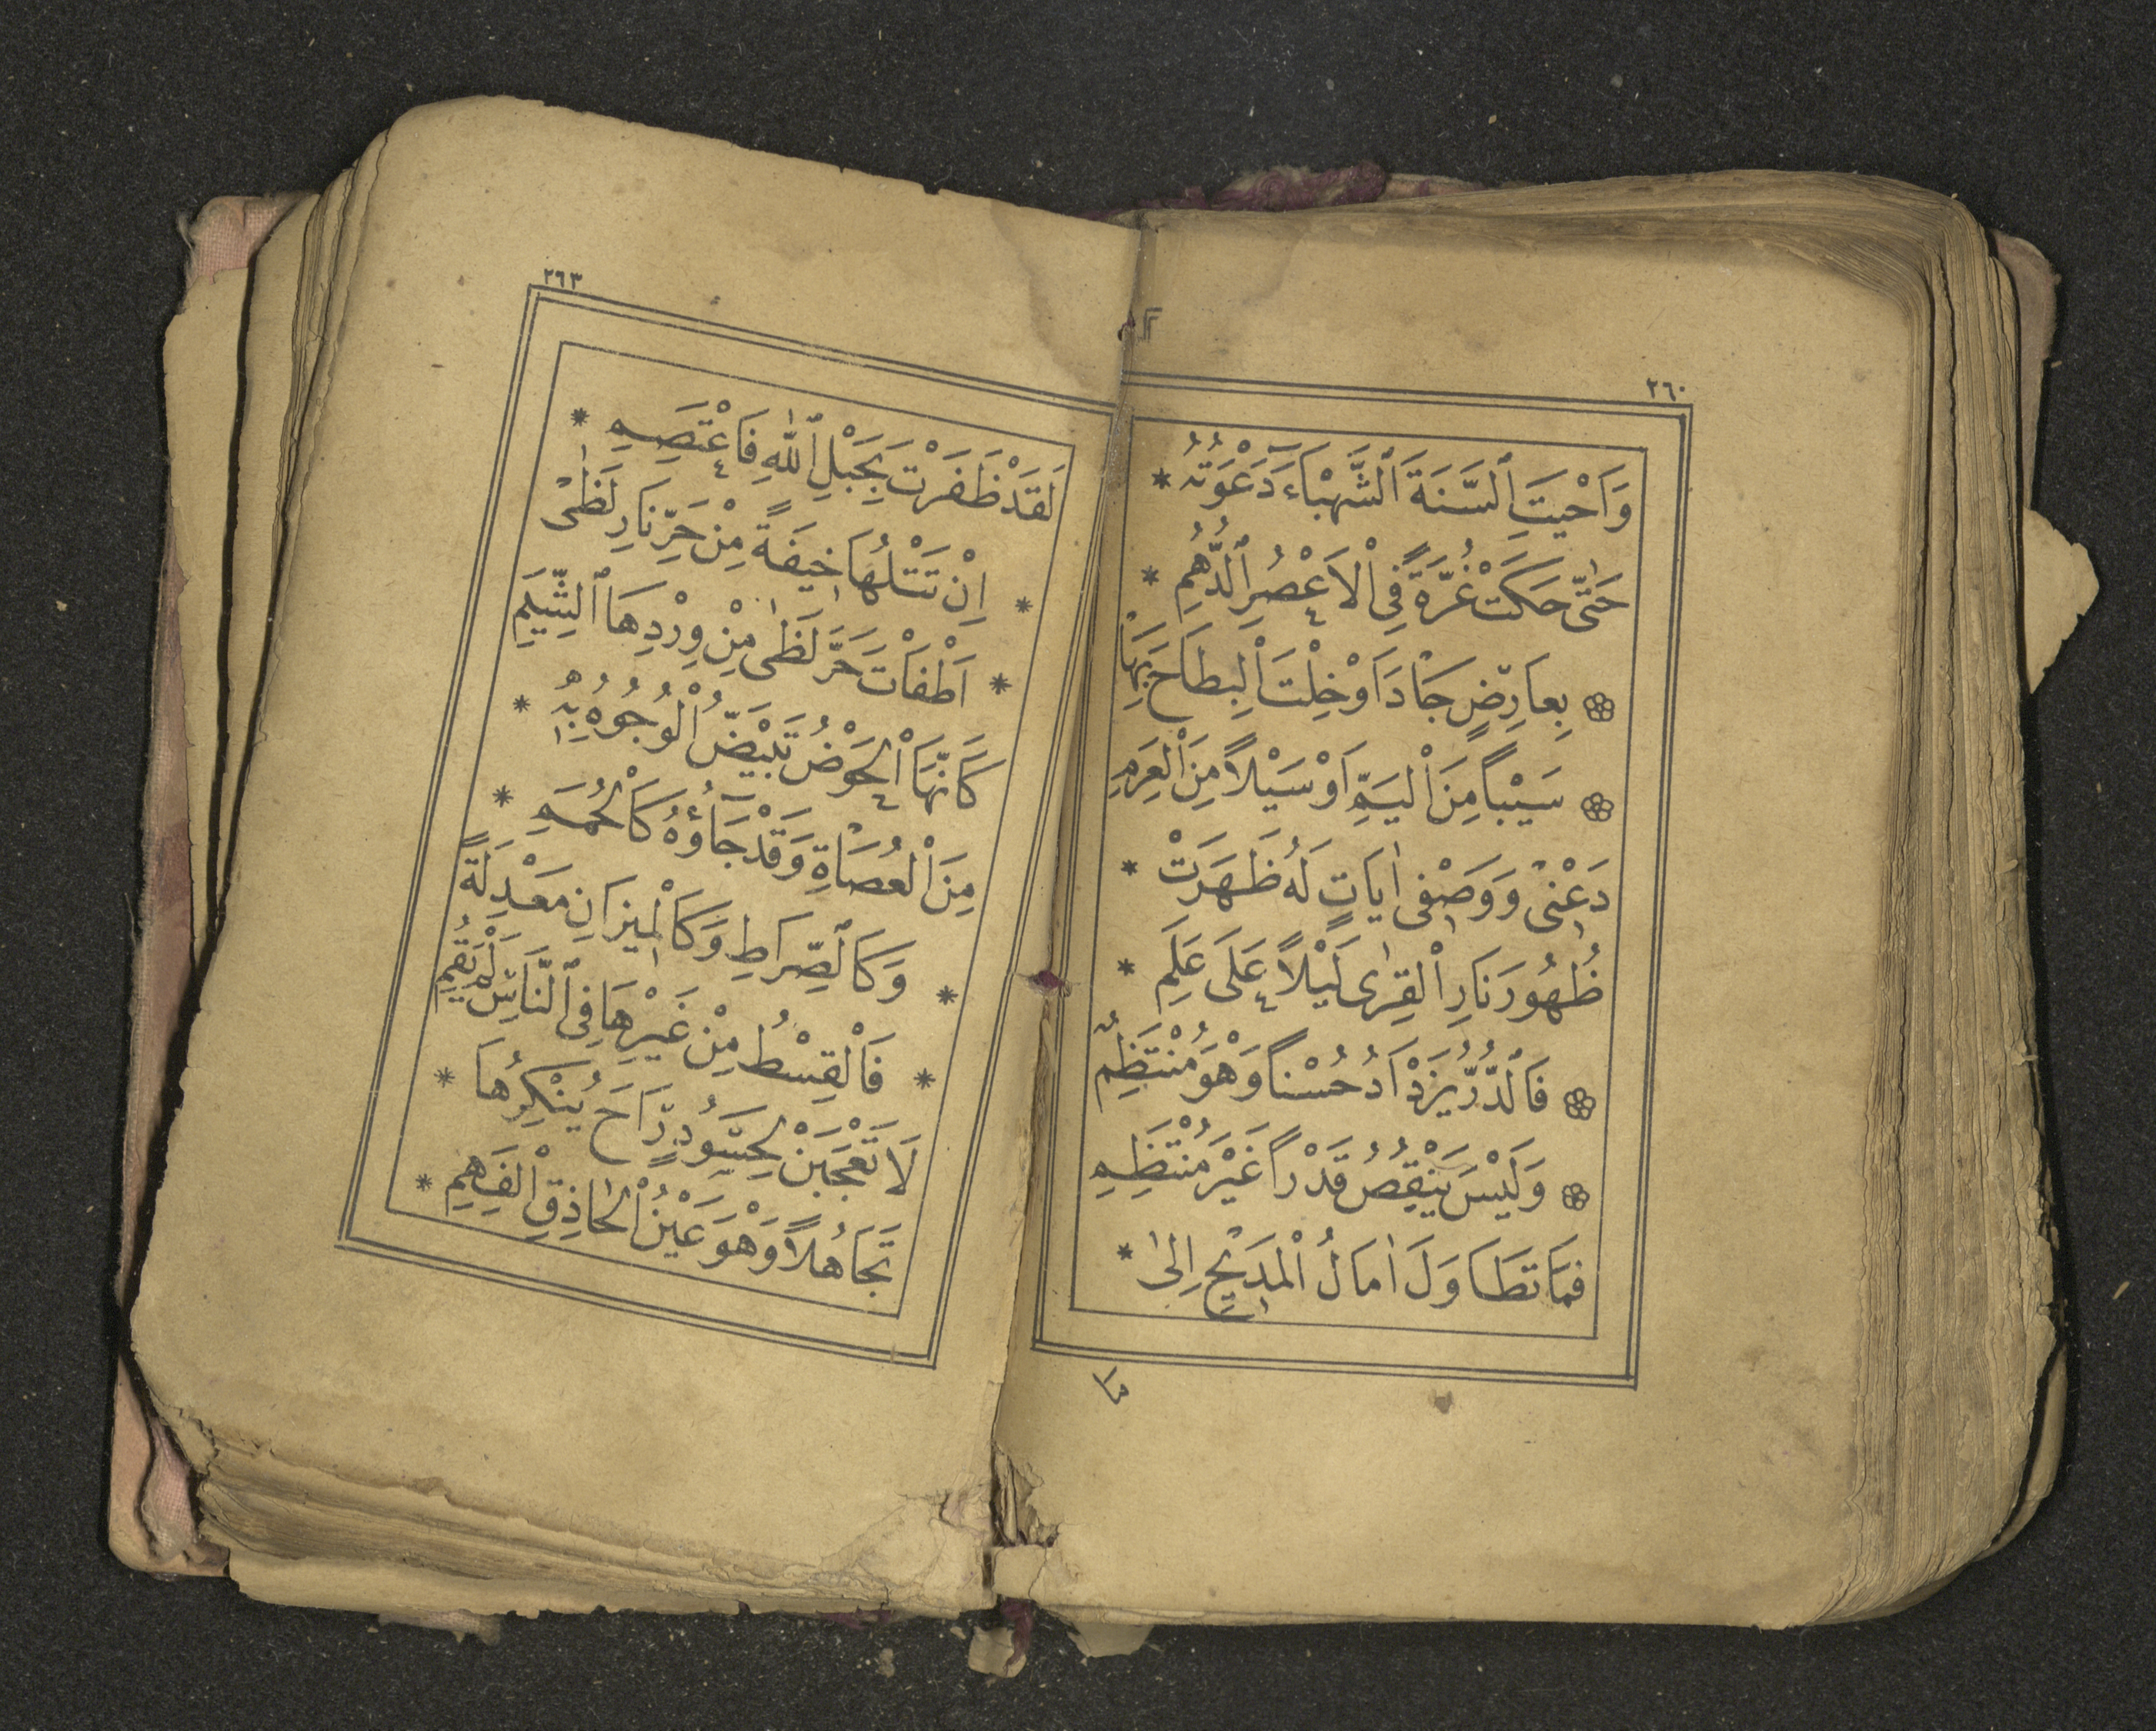 ٢٦٠
وَاَحْيَتِ ٱلسَّنَةَ ٱلشَّهْبَآءَ دَعْوَتُهُ *
حَتّٰى حَكَتْ غُرَّةً فِى ٱلْاَعْصُرِ ٱلدُّهُمِ *
بِعَارِضٍ جَادَ اَوْ خِلْتَ ٱلْبِطَاحَ بِهَا
سَيْبًا مِنَ ٱلْيَمِّ اَوْ سَيْلًا مِنَ ٱلْعَرِمِ
دَعْنِى وَوَصْفِى اٰيَاتٍ لَهُ ظَهَرَتْ *
ظُهُورَ نَارِ ٱلْقِرٰى لَيْلًا عَلَى عَلَمِ *
فَٱلدُّرُّ يَزْدَادُ حُسْنًا وَهْوَ مُنْتَظِمٌ
وَلَيْسَ يَنْقُصُ قَدْرًا غَيْرَ مُنْتَظِمِ
فَمَا تَطَاوَلَ اٰمَالُ ٱلْمَدِيْحِ اِلٰى *
مَا
٢٦٣
لَقَدْ ظَفَرْتَ بِحَبْلِ ٱللّٰهِ فَاعْتَصِمِ *
* اِنْ تَتْلُهَا خِيفَةً مِنْ حَرِّ نَارِ لَظٰى
* اَطْفَاْتَ حَرَّ لَظٰى مِنْ وِرْدِهَا ٱلشَّبِمِ
كَاَنَّهَا ٱلْحَوْضُ تَبْيَضُّ ٱلْوُجُوهُ بِهِ *
مِنَ ٱلْعُصَاةِ وَقَدْ جَآؤُهُ كَٱلْحُمَمِ *
* وَكَٱلصِّرَاطِ وَكَٱلْمِيزَانِ مَعْدِلَةً
* فَٱلْقِسْطُ مِنْ غَيْرِهَا فِى ٱلنَّاسِ لَمْ يَقُمِ
لَا تَعْجَبَنْ لِحَسُودٍ رَاحَ يُنْكِرُهَا *
تَجَاهُلًا وَهْوَ عَيْنُ ٱلْحَاذِقِ ٱلْفَهِمِ *